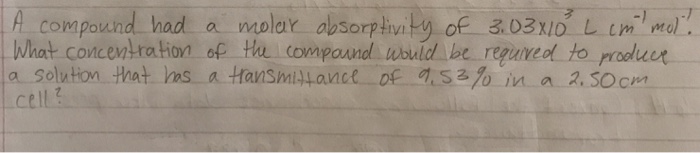 A compound had a molar absorptivity of 3.03x10³ L cm⁻¹ mol⁻¹.
What concentration of the compound would be required to produce
a solution that has a transmittance of 9.53% in a 2.50cm
cell?